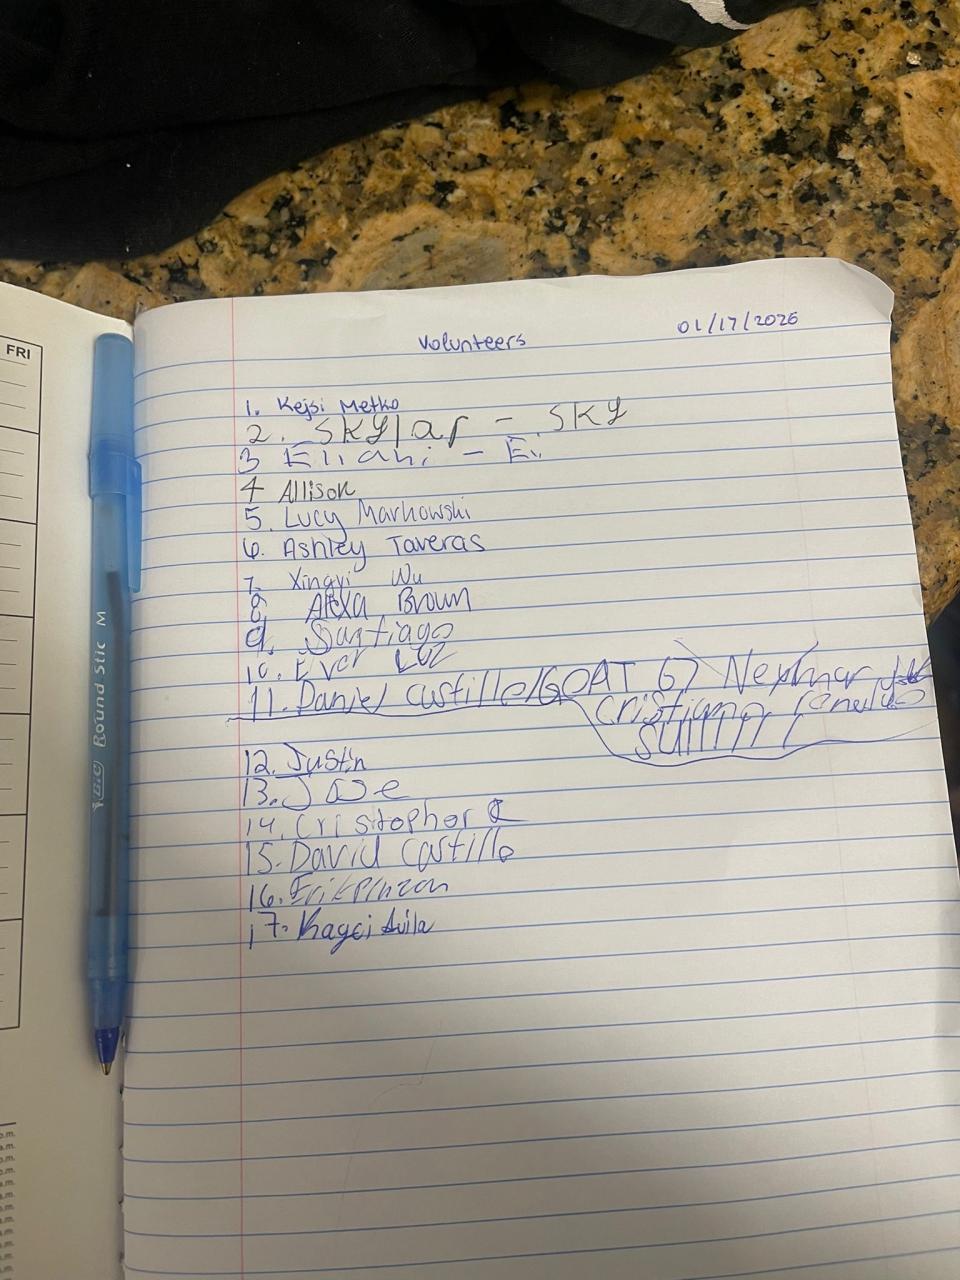 FRI
Volunteers
01/17/2026
1. Kejsi Metko
2. Skylar - SKY
3 Eliani - Eli
4 Allison
5. Lucy Markowski
6. Ashley Taveras
7. Xingyi Wu
8 Alexa Brown
9. Santiago
10. Ever Luz
11. Daniel Castillo/GOAT 67 Neymar
Cristiano
12. Justin
13. Jose
14. Cristopher
15. David Castillo
16. Erik pinzon
17. Avila
BIC Round Stic M
p.m.
a.m.